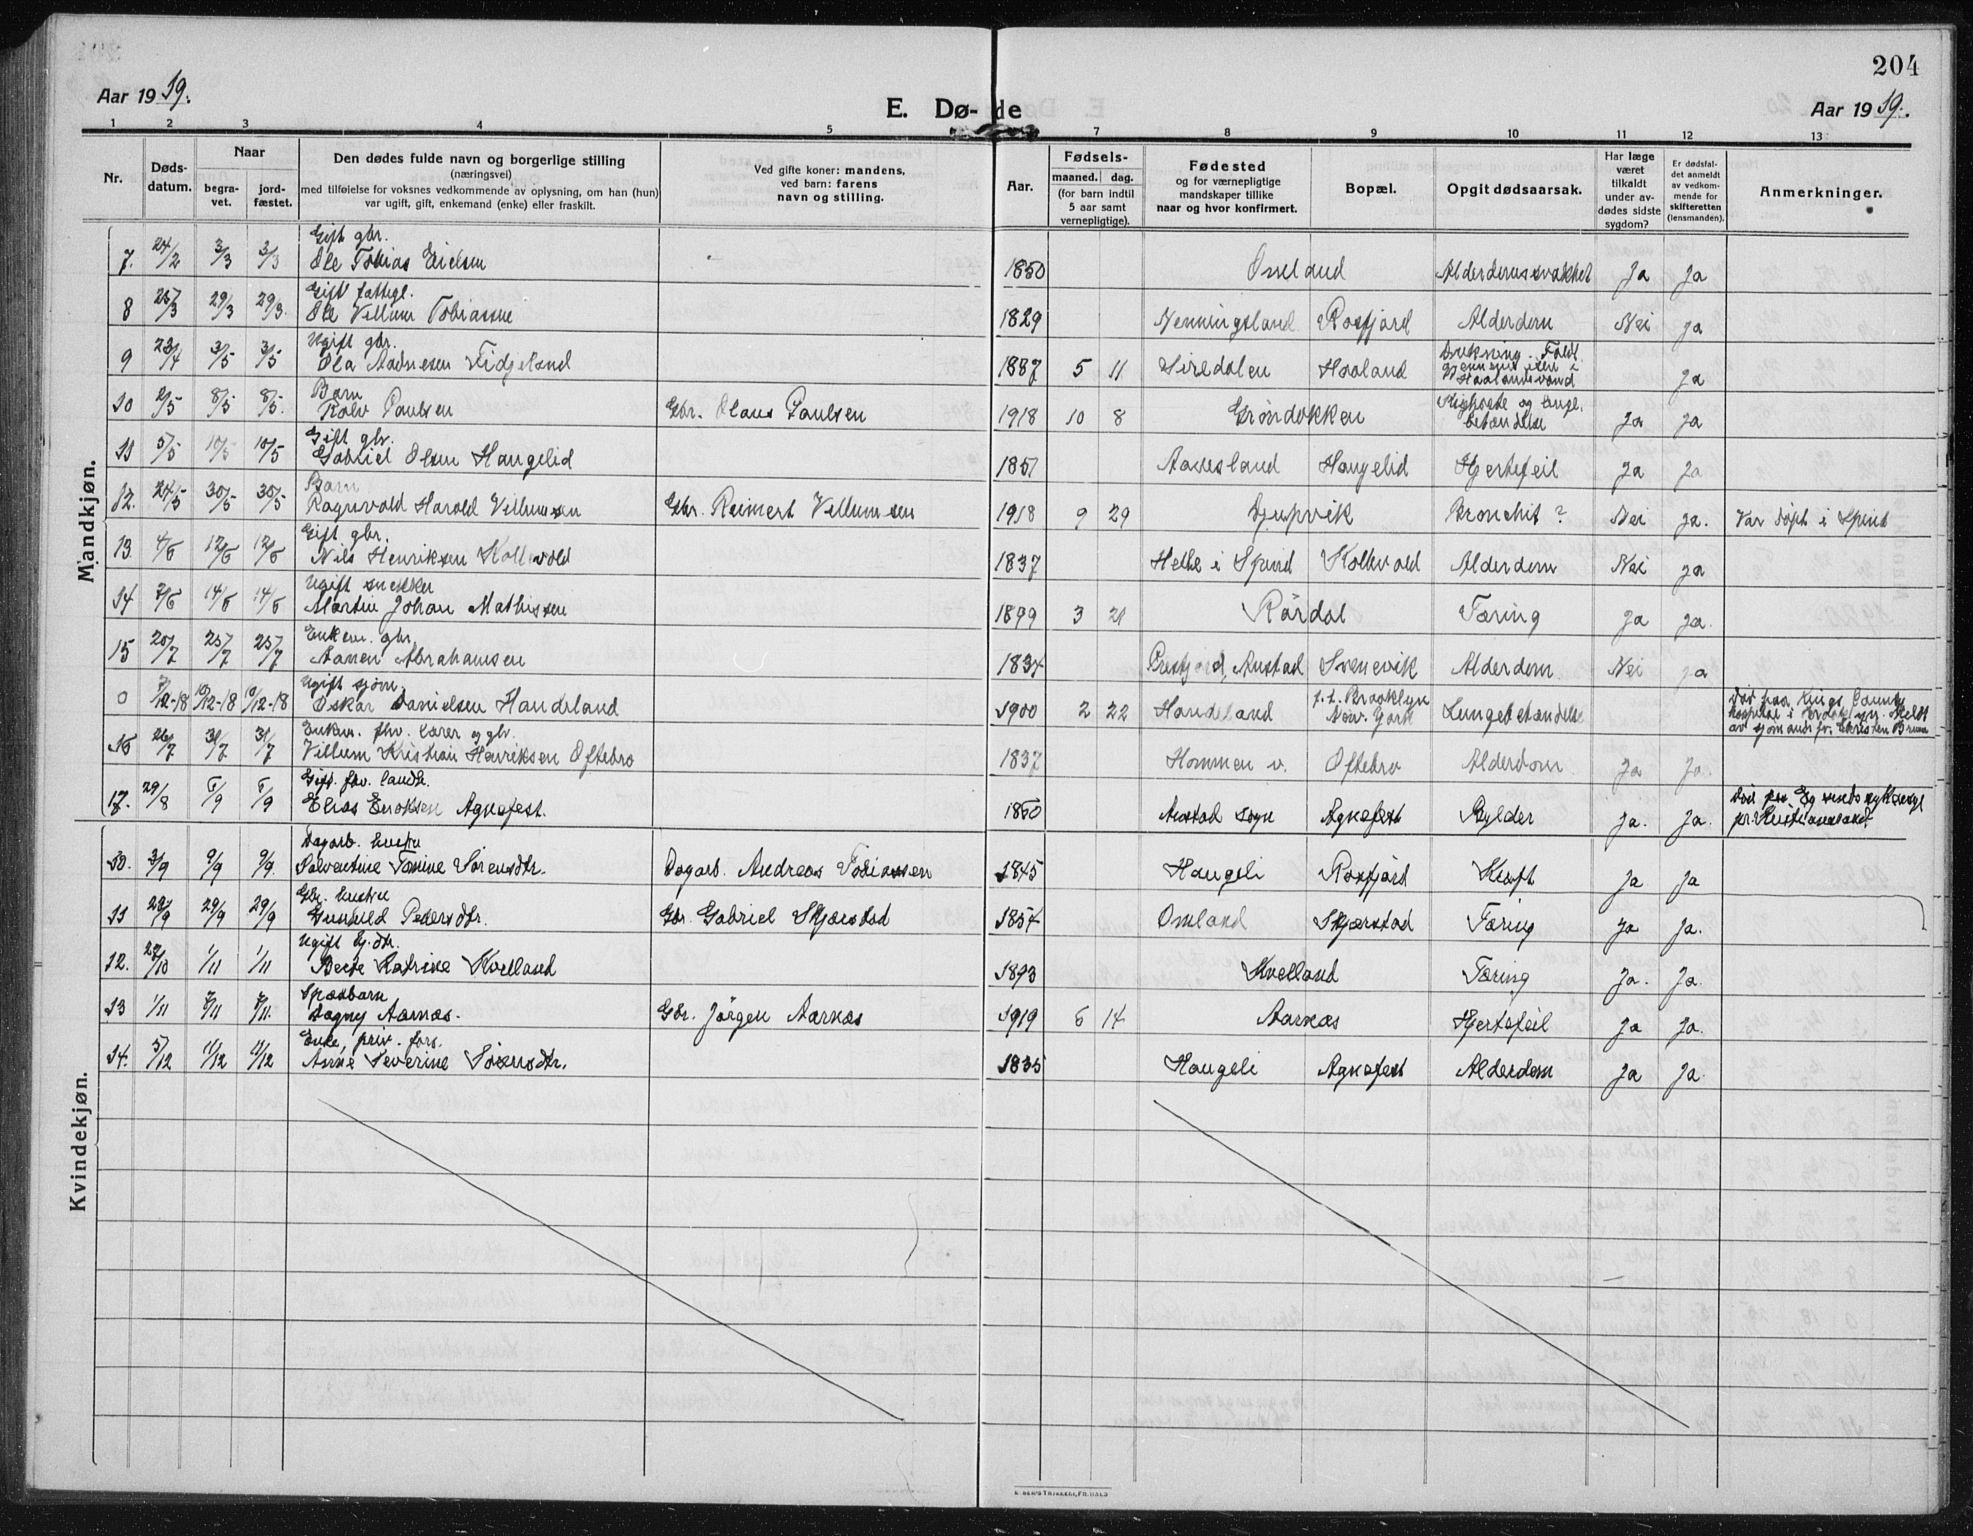 204
Aar 1919.
E. Dø-de
Aar 1919.
1 2 3 4 5 7 8 9 10 11 12 13
Nr.
Døds-
datum.
Naar
begra-
vet.
jord-
fæstet.
Den dødes fulde navn og borgerlige stilling
(næringsvei)
med tilføielse for voksnes vedkommende av oplysning, om han (hun)
var ugift, gift, enkemand (enke) eller fraskilt.
Ved gifte koner: mandens,
ved barn: farens
navn og stilling.
Aar.
Fødsels-
maaned. dag.
(for barn indtil
5 aar samt
vernepligtige).
Fødested
og for værnepligtige
mandskaper tillike
naar og hvor konfirmert.
Bopæl.
Opgit dødsaarsak.
Har læge
været
tilkaldt
under av-
dødes sidste
sygdom?
Er dødsfal-
det anmeldt
av vedkom-
mende for
skifteretten
(lensmanden).
Anmerkninger.
Mandkjøn.
Gift gbr.
7. 24/2 3/3 3/3 Ole Tobias Eielsen 1850 Omland Alderdomssvakhet Ja Ja
Gift fattigl.
8 25/3 29/3 29/3. Ole Villum Tobiassen 1829 Nenningsland Rosfjord Alderdom Nei ja
Ugift gbr.
9 23/4 3/5 3/5 Ola Aadnesen Fidjeland 1887 5 11 Siredalen Haaland Drukning. Faldt
Haalandsvand ja
Barn
10 2/5 8/5 8/5. Rolv Paulsen Gbr. Olaus Paulsen 1918 10 8 Grøndokken Kighoste og lunge-
betændelse Ja Ja
Gift gbr.
11 5/5 10/5 10/5 Gabriel Olsen Haugelid 1851 Aanesland Haugelid Hjertefeil Ja Ja
Barn
12. 24/5 30/5 30/5 Ragnvald Harald Villumsen Gbr. Reinert Villumsen 1918 9 29 Djupvik Bronchit ? Nei ja. Var døpt i Spind
Gift gbr.
13 4/6 12/6 12/6 Nils Henriksen Kollevold 1837 Helle i Spind Kollevold Alderdom Nei ja
Ugift snekker
14 7/6 14/6 14/6 Martin Johan Mathissen 1899 3 21 Rørdal Tæring Ja Ja.
Enkem. gbr.
15 20/7 25/7 25/7 Aanen Abrahamsen 1834 Austad Svenevik Alderdom Nei ja
Ugift sjøm.
0 7/12-18 10/12-18 10/12-18 Oskar Danielsen Handeland 1900 2 22 Handeland f.t. Brooklyn
New York Lungebetændelse Død paa Kings County
hospital i Brooklyn. Meldt
av sjømandspr. Christen Bruun
Enkem. fhv. lærer og gbr.
16 26/7 31/7 31/7 Villum Kristian Henriksen Oftebro 1837 Hommen v. Oftebro Alderdom Ja Ja.
Gift. fhv. landh.
17. 29/8 6/9 6/9 Elias Eriksen Agnefest. 1850 Austad sogn Agnefest Ja. Ja. Død paa Eg sindssykeasyl
pr. Kristianssand.
Kvindekjøn.
Dagarb. hustru
10. 3/9 9/9 9/9. Salventine Tomine Sørensdtr. Dagarb. Andreas Tobiassen 1845 Haugeli Rosfjord Kræft Ja Ja
Gbr. hustru
11 23/9 29/9 29/9 Gunhild Pedersdtr. Gbr. Gabriel Skjærstad 1854 Omland Skjærstad Tæring Ja Ja.
Ugift gj.dtr.
12. 27/10 1/11 1/11 Berte Katrine Kvelland 1893 Kvelland Tæring Ja. Ja.
Spædbarn
13 1/11 7/11 7/11. Dagny Aarnæs. Gbr. Jørgen Aarnæs 1919 6 14 Aarnæs Hjertefeil Ja Ja.
Enke, priv. fors.
14. 5/12 11/12 11/12 Anne Severine Sørensdtr. 1835 Haugeli Agnefest Alderdom Ja Ja.